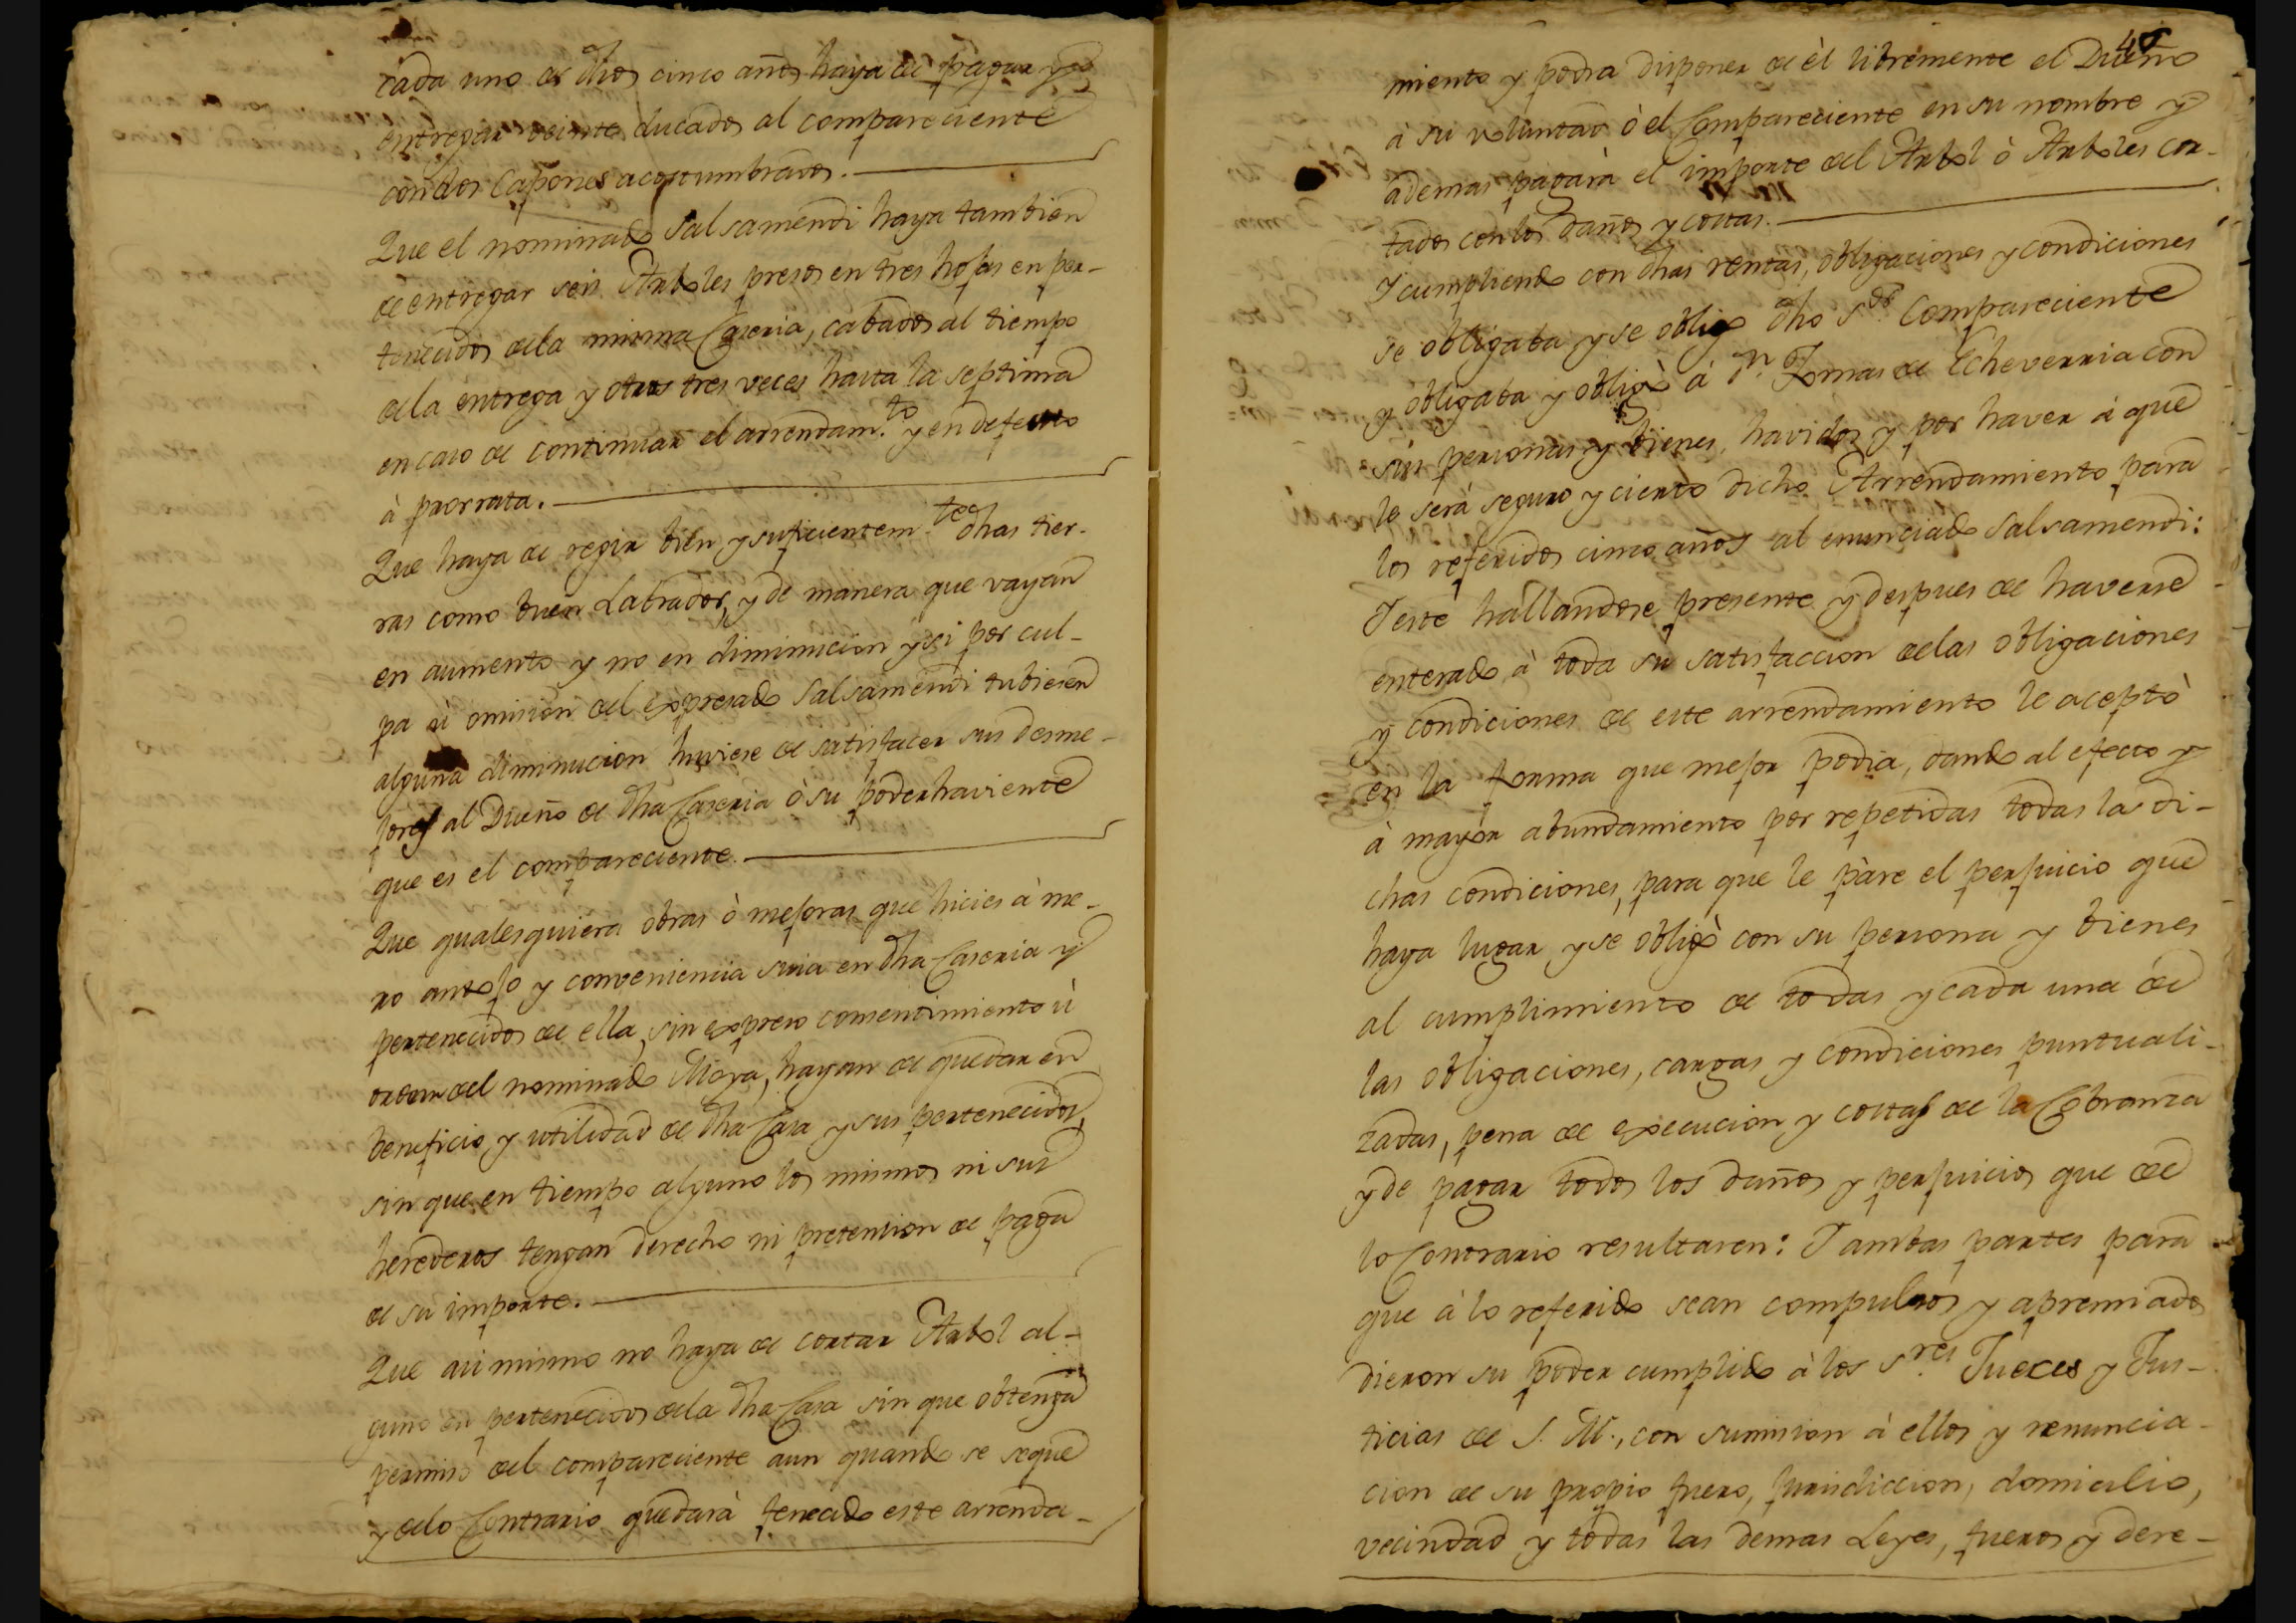 cada uno de dhos cinco años haya de pagar y
entregar veinte ducados al compareciente
con dos Capones acostumbrados.
Que el nominado Salsamendi haya tambien
de entregar seis Arboles presos en tres hojas en per-
tenecidos de la misma Caseria, cabados al tiempo
de la entrega y otras tres veces hasta la septima
en caso de continuar el arrendam.to y en defecto
à prorrata.
Que haya de regir bien y suficientem.te dhas tier-
ras como buen Labrador, y de manera que vayan
en aumento y no en diminucion y si por cul-
pa ù omision del expresado Salsamendi tubiesen
alguna diminucion huviere de satisfacer sus desme-
jores al Dueño de dha Caseria ò su poderhaviente
que es el compareciente.
Que qualesquiera obras ò mejoras que hicies à me-
ro antojo y conveniencia suia en dha Caseria y
pertenecidos de ella, sin expreso consentimiento ù
orden del nominado Moya, hayan de quedar en
beneficio y utilidad de dha Casa y sus pertenecidos,
sin que en tiempo alguno los mismos ni sus
herederos tengan derecho ni pretension de paga
de su importe.
Que asi mismo no haya de cortar Arbol al-
guno en pertenecidos de la dha Casa sin que obtenga
permiso del compareciente aun quando se seque
y de lo Contrario quedarà fenecido este arrenda-
40
miento y podra disponer de èl libremente el Dueño
à su voluntad ò el Compareciente en su nombre y
ademas pagarà el importe del Arbol ò Arboles cor-
tados con los daños y costas.
Y cumpliendo con dhas rentas, obligaciones y condiciones
se obligaba y se obligo dho S.or Compareciente
y obligaba y obligò à D.n Tomas de Echeverria con
sus personas y bienes, havidos y por haver à que
le serà seguro y cierto dicho Arrendamiento para
los referidos cinco años al enunciado Salsamendi:
Y este hallandose presente y despues de haverse
enterado à toda su satisfaccion de las obligaciones
y condiciones de este arrendamiento le aceptò
en la forma que mejor podia, dando al efecto y
à mayor abundamiento por repetidas todas las di-
chas condiciones, para que le pàre el perjuicio que
haya lugar y se obligò con su persona y bienes
al cumplimiento de todas y cada una de
las obligaciones, cargas y condiciones puntuali-
zadas, pena de execucion y costas de la Cobranza
y de pagar todos los daños y perjuicios que de
lo Contrario resultasen: Y ambas partes para
que à lo referido sean compulsos y apremiados
dieron su poder cumplido à los S.res Jueces y Jus-
ticias de S. M., con sumision à ellos y renuncia-
cion de su propio fuero, jurisdiccion, domicilio,
vecindad y todas las demas Leyes, fueros y dere-